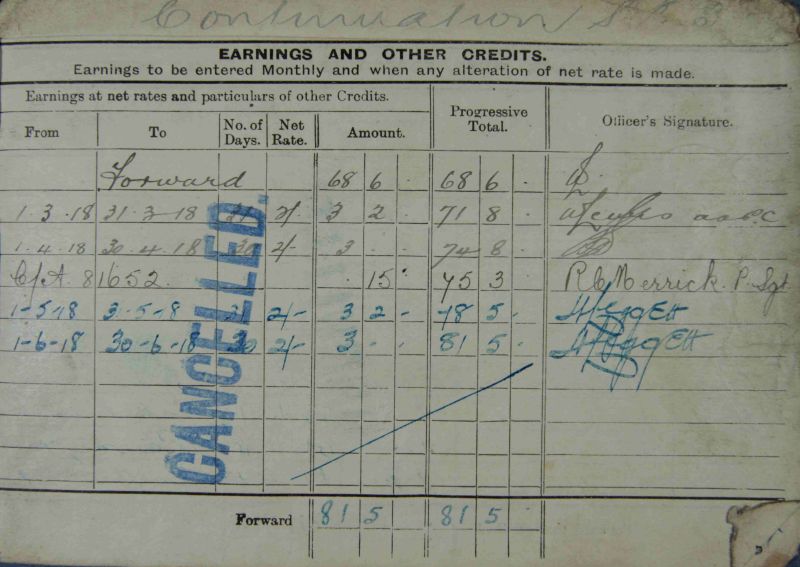 Continuation
EARNINGS AND OTHER CREDITS.
Earnings to be entered Monthly and when any alteration of net rate is made.
Earnings at net rates and particulars of other Credits.
From To No. of Days. Net Rate. Amount. Progressive Total. Officer's Signature.
Forward 68 6 . 68 6 .
1.3.18 31.3.18 31 2/- 3 2 . 71 8 .
1.4.18 30.4.18 30 2/- 3 . 74 8 .
C/A 81652. . 15 . 75 3 R C Merrick. P. Sgt
1-5-18 3-5-8 31 2/- 3 2 - 78 5 .
1-6-18 30-6-18 30 2/- 3 - . 81 5 .
CANCELLED.
Forward 81 5 81 5 .